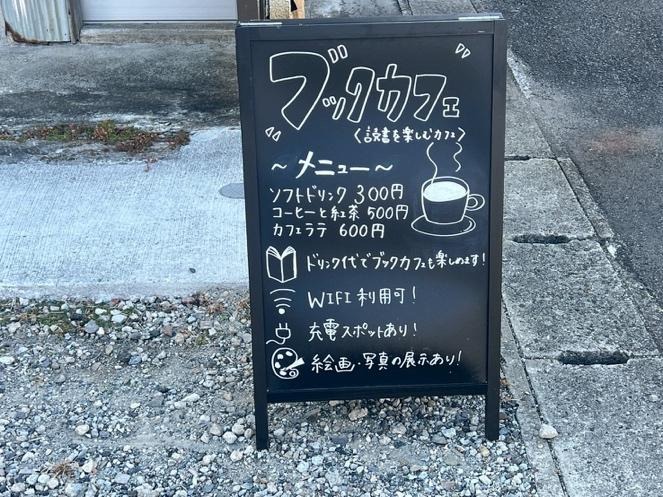 ブックカフェ
〈読書を楽しむカフェ〉
～メニュー～
ソフトドリンク 300円
コーヒーと紅茶 500円
カフェラテ 600円
ドリンク代でブックカフェも楽しめます!
WIFI 利用可!
充電スポットあり!
絵画・写真の展示あり!